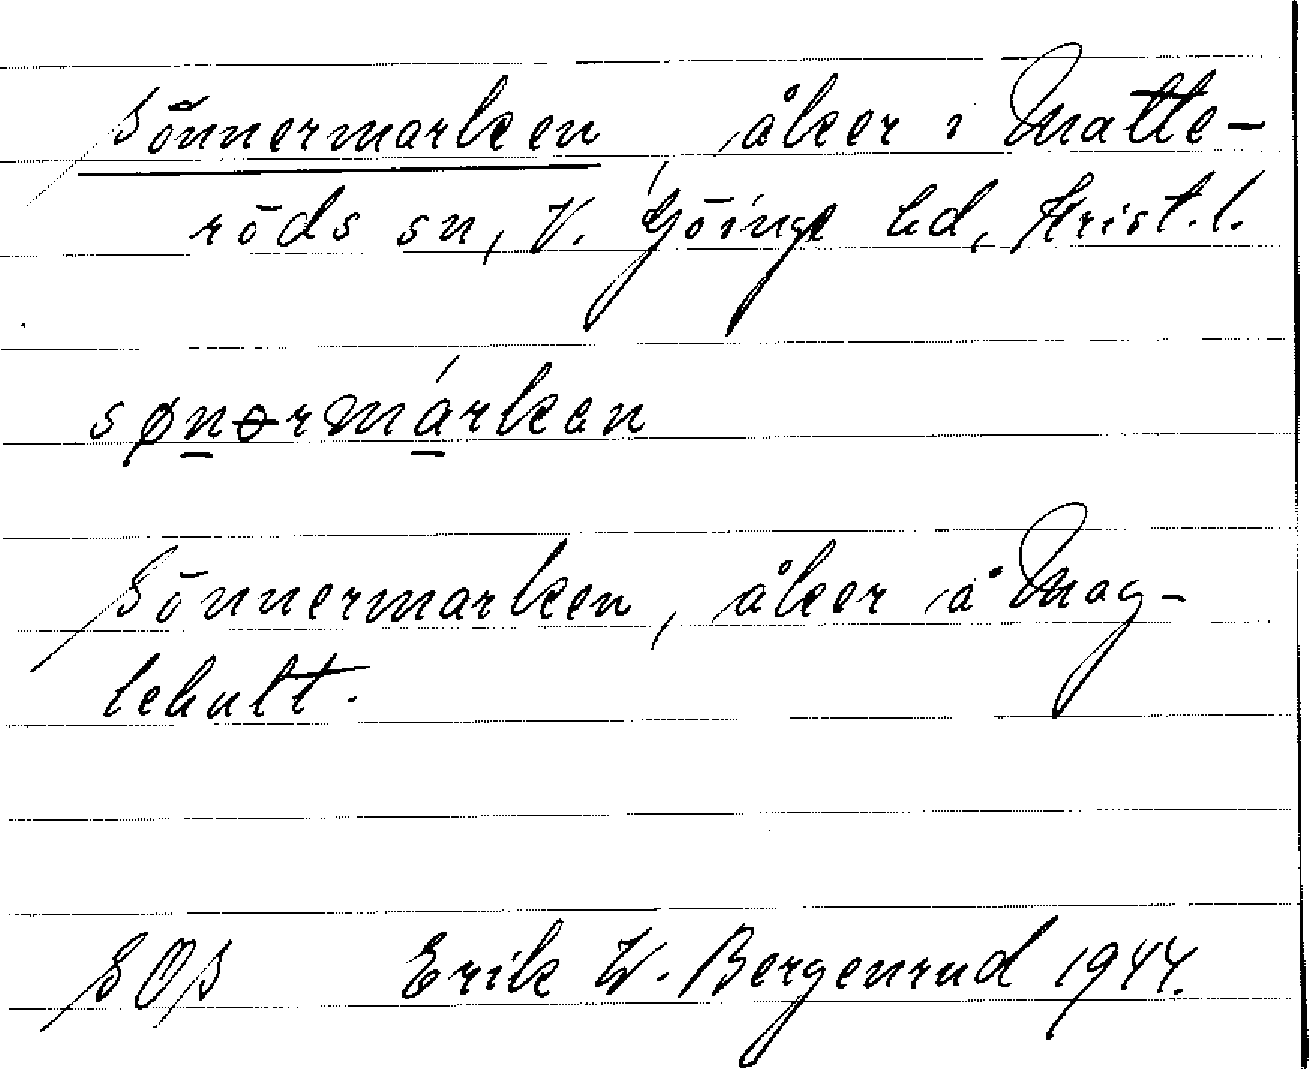 Sönnermarken åker i Matte-
röds sn, V. Göinge hd, Krist. l.
sønɵrmárkan
Sönnermarken, åker å Mag-
lehult.
SOS Erik W. Bergenrud 1944.